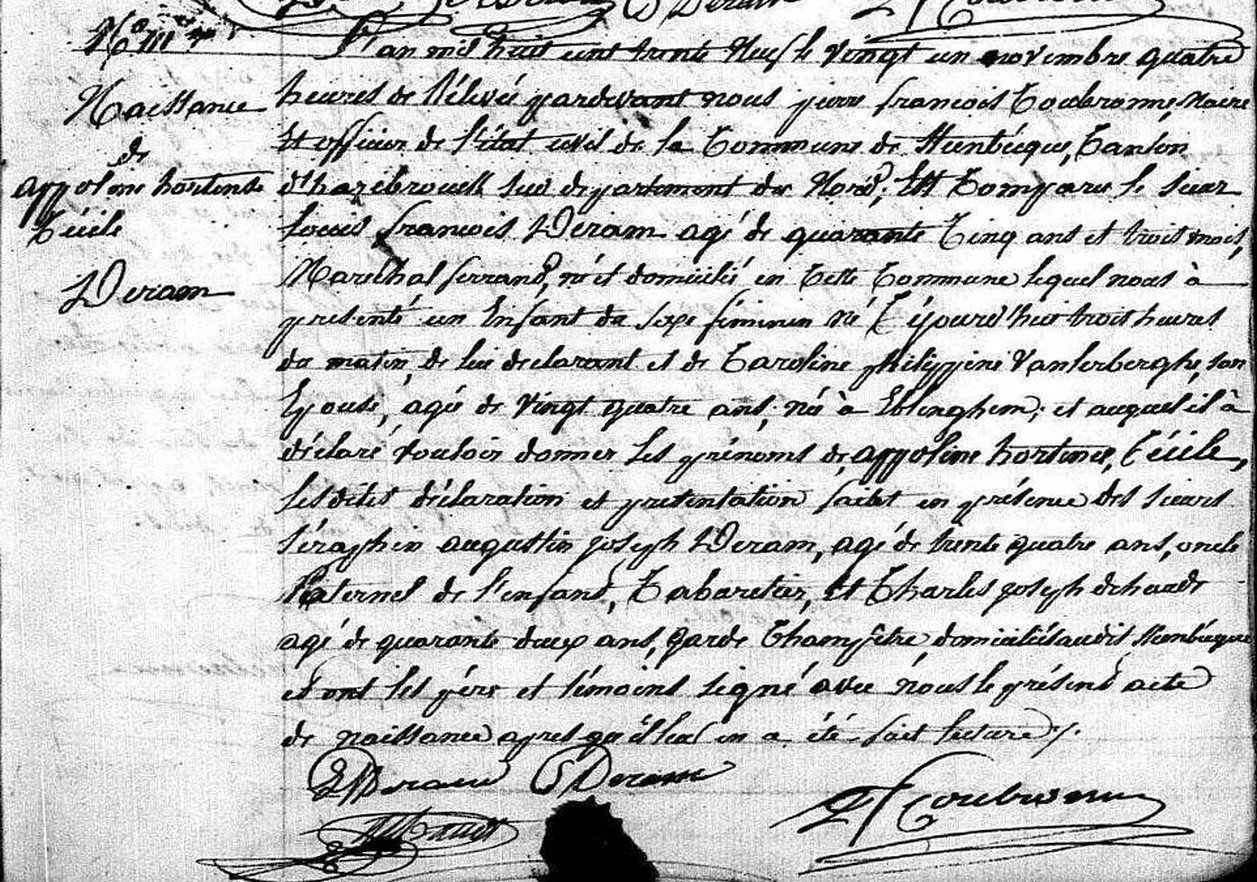 Naissance
de
appoline hortense
Cécile
Deram
L'an mil huit cent trente Neuf le vingt un novembre quatre
heures de rélévée pardevant nous pierre françois Coubronne, Maire
Et officier de l'état civil de la Commune de Steenbécque, Canton
d'hazebrouck sud departement du Nord; Est Comparu le sieur
Louis françois Deram agé de quarante Cinq ans et trois mois,
Marechal ferrand, né et domicilié en Cette Commune lequel nous à
présenté un Enfant du sexe féminin né Céjourd'hui trois heures
du matin, de lui declarant et de Caroline philippine Vanlerberghe, son
Epouse, agée de Vingt quatre ans, née à Eblinghem; et auquel il à
déclaré vouloir donner les prénoms de appoline hortence, Cécile,
Lesdites déclaration et présentation faites en présence des sieurs
Séraphin augustin joseph Deram, agé de trente quatre ans, oncle
Paternel de l'enfand, Cabaretier, Et Charles joseph
agé de quarante deux ans, garde Champêtre domiciliés audit Steenbécque
et ont les pére et témoins signé avec nous le présend acte
de naissance apres qu'il leur en a été fait lecture
Deram Deram
Coubronne